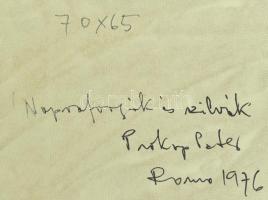 70x65
Napraforgók és szilvák
Prokop Péter
Roma 1976